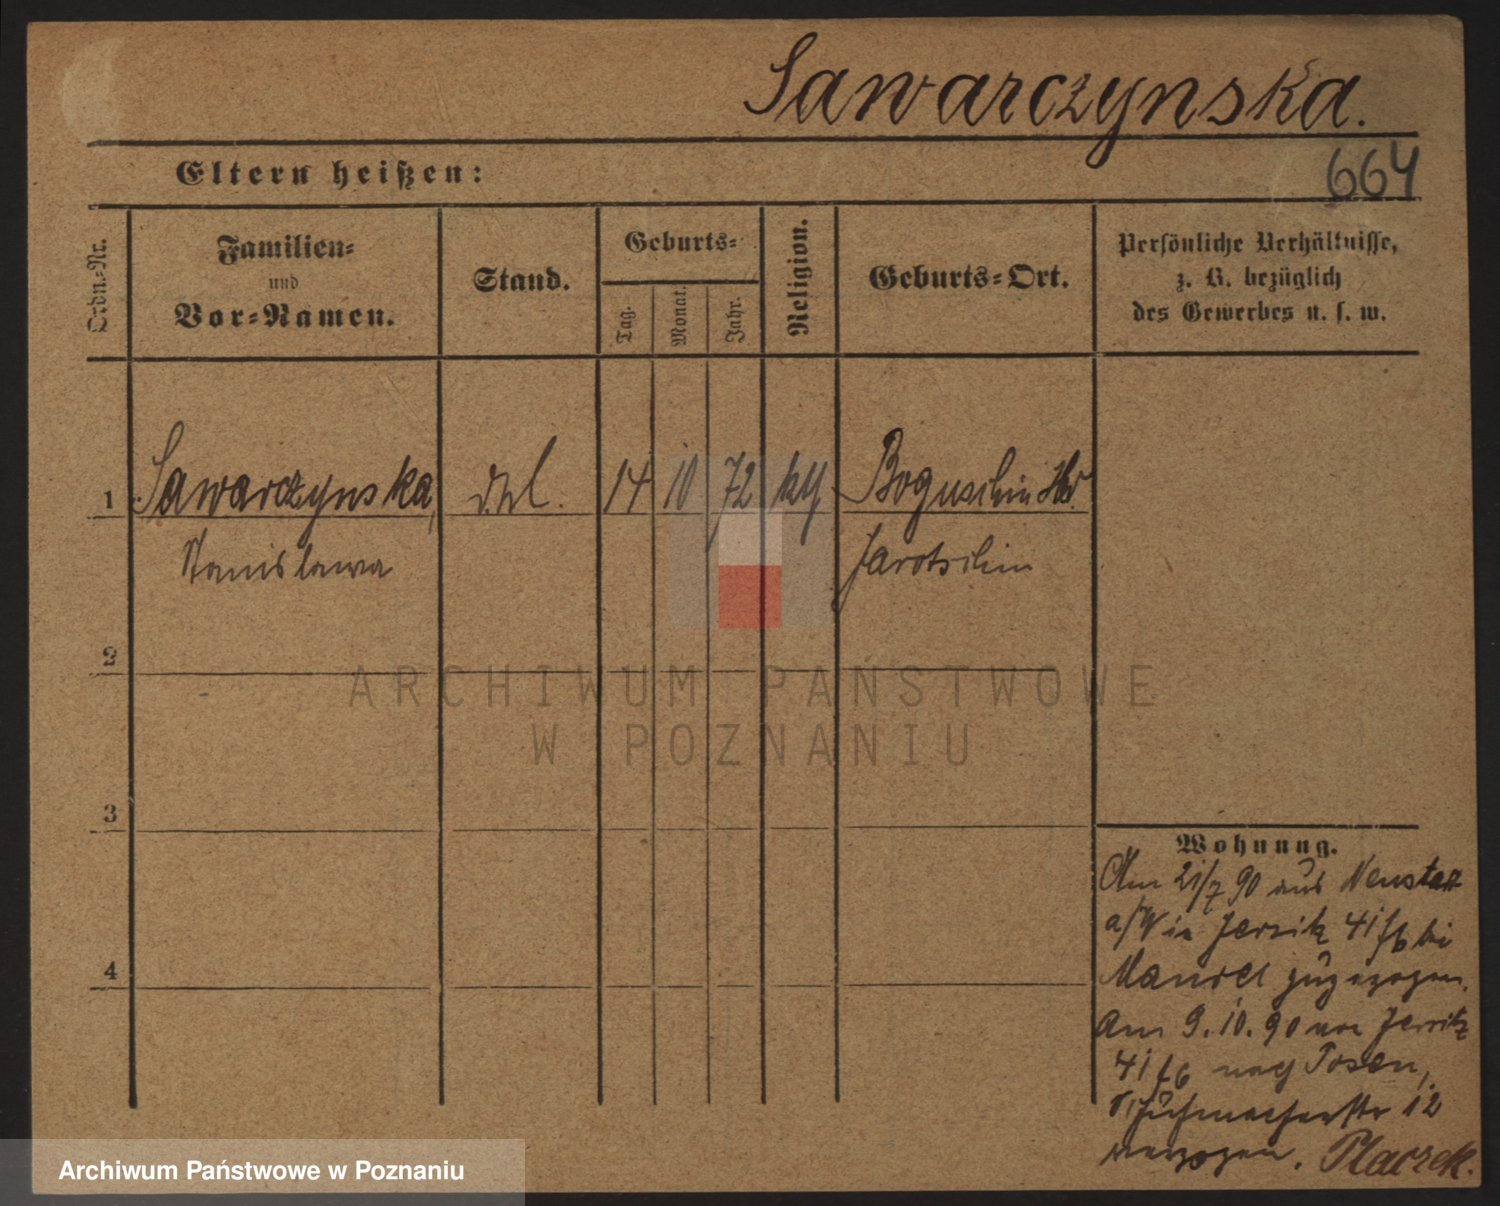 Sawarczynska.
664
Eltern heißen:
Ordn.-Nr.
Familien-
und
Vor-Namen.
Stand.
Geburts-
Tag.
Monat.
Jahr.
Religion.
Geburts-Ort.
Persönliche Verhältnisse,
z. B. bezüglich
des Gewerbes u. s. w.
1 Sawarczynska, 14 10 72 Boguschin
Stanislawa Jarotschin
2
3
4
Wohnung.
Am 21/7 90 aus Neustadt
a/W in Jersitz 41 bei
zugezogen.
Am 9.10.90 von Jersitz
41 nach Posen,
12
verzogen.
ARCHIWUM PAŃSTWOWE
W POZNANIU
Archiwum Państwowe w Poznaniu